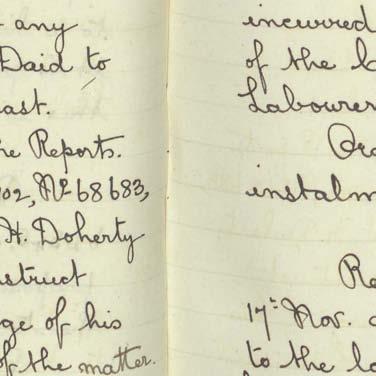 any
Daid to
ast.
he Reports.
02, Nº 68683,
H. Doherty
struct
ge of his
of the matter.
incurred
of the l
Labourer
Ord
instalm
Re
17th Nov.
to the la